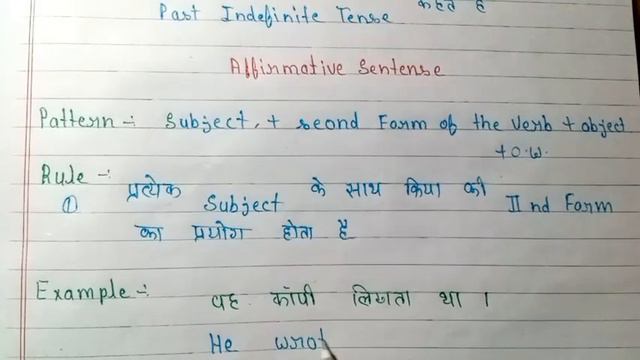 Past Indefinite Tense कहते है
Affirmative Sentense
Pattern :- Subject, + seond Form of the verb + object
+ o.w.
Rule -:
① प्रत्येक Subject के साथ क्रिया की II nd Form
का प्रयोग होता है
Example -: वह कॉपी लिखता था ।
He wrot